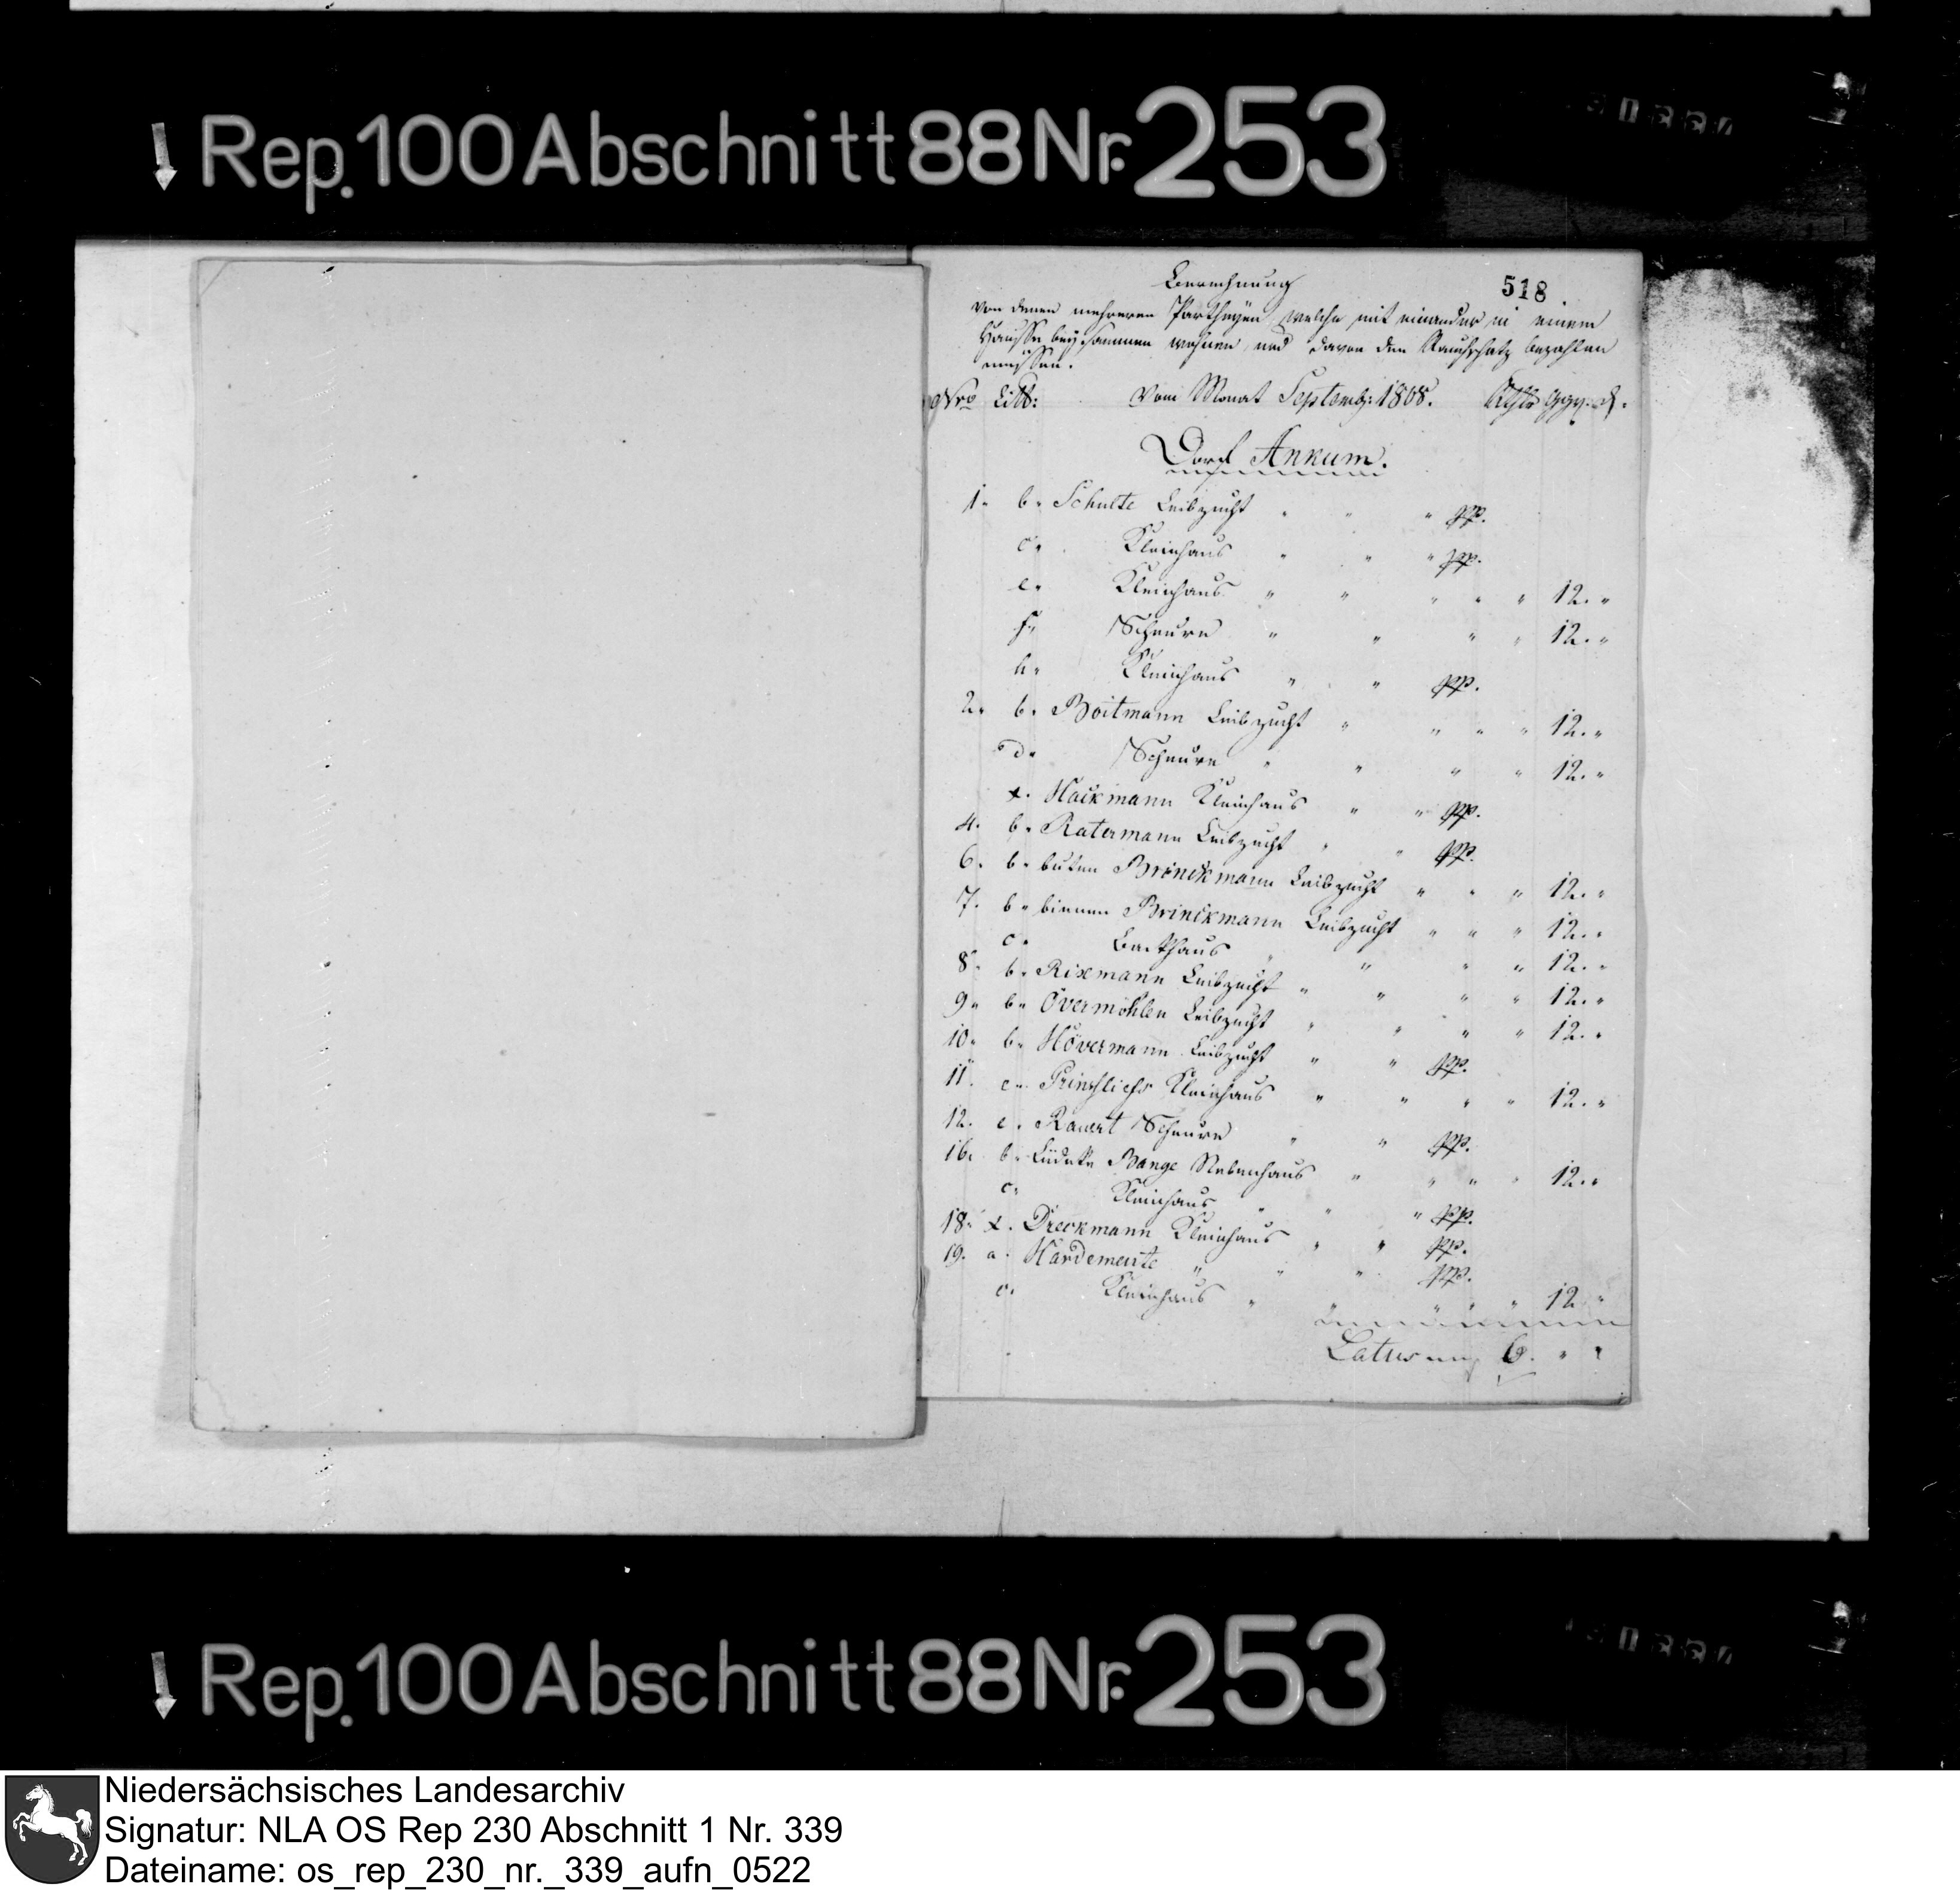 Rep. 100 Abschnitt 88 Nr. 253
518
Berechnung
von denen mehreren Partheyen, welche mit einander in einem
Hausse beysammen wohnen und davon den Rauchschatz bezahlen
müssen.
Nro Litt: Vom Monat Septemb: 1808. Rthlr ggr. d.
Dorf Ankum.
1. b. Schulte Leibzucht " " " pp.
c. Kleinhaus " " " pp.
e. Kleinhaus " " " " " 12. "
f. Scheure " " " " 12. "
h. Kleinhaus " " pp.
2. b. Boitmann Leibzucht " " " " 12. "
d. Scheure " " " " 12. "
x. Hackmann Kleinhaus " " pp.
4. b. Ratermann Leibzucht " " pp.
6. b. buten Brinckmann Leibzucht " " " 12. "
7. b. binnen Brinckmann Leibzucht " " " 12. "
c. Backhaus " " " " 12. "
8. b. Rixmann Leibzucht " " " " 12. "
9. b. Övermöhlen Leibzucht " " " " 12. "
10. b. Hövermann Leibzucht " " pp.
11. c. Kleinhaus " " " " 12. "
12. c. Rauert Scheure " " pp.
16. b. Lüdeke Bange Nebenhaus " " " " 12. "
c. Kleinhaus " " " pp.
18. x. Dreckmann Kleinhaus " " pp.
19. a. Hardemente " " " pp.
c. Kleinhaus " " " " " 12 "
Latus 6. " "
Rep. 100 Abschnitt 88 Nr. 253
Niedersächsisches Landesarchiv
Signatur: NLA OS Rep 230 Abschnitt 1 Nr. 339
Dateiname: os_rep_230_nr._339_aufn_0522